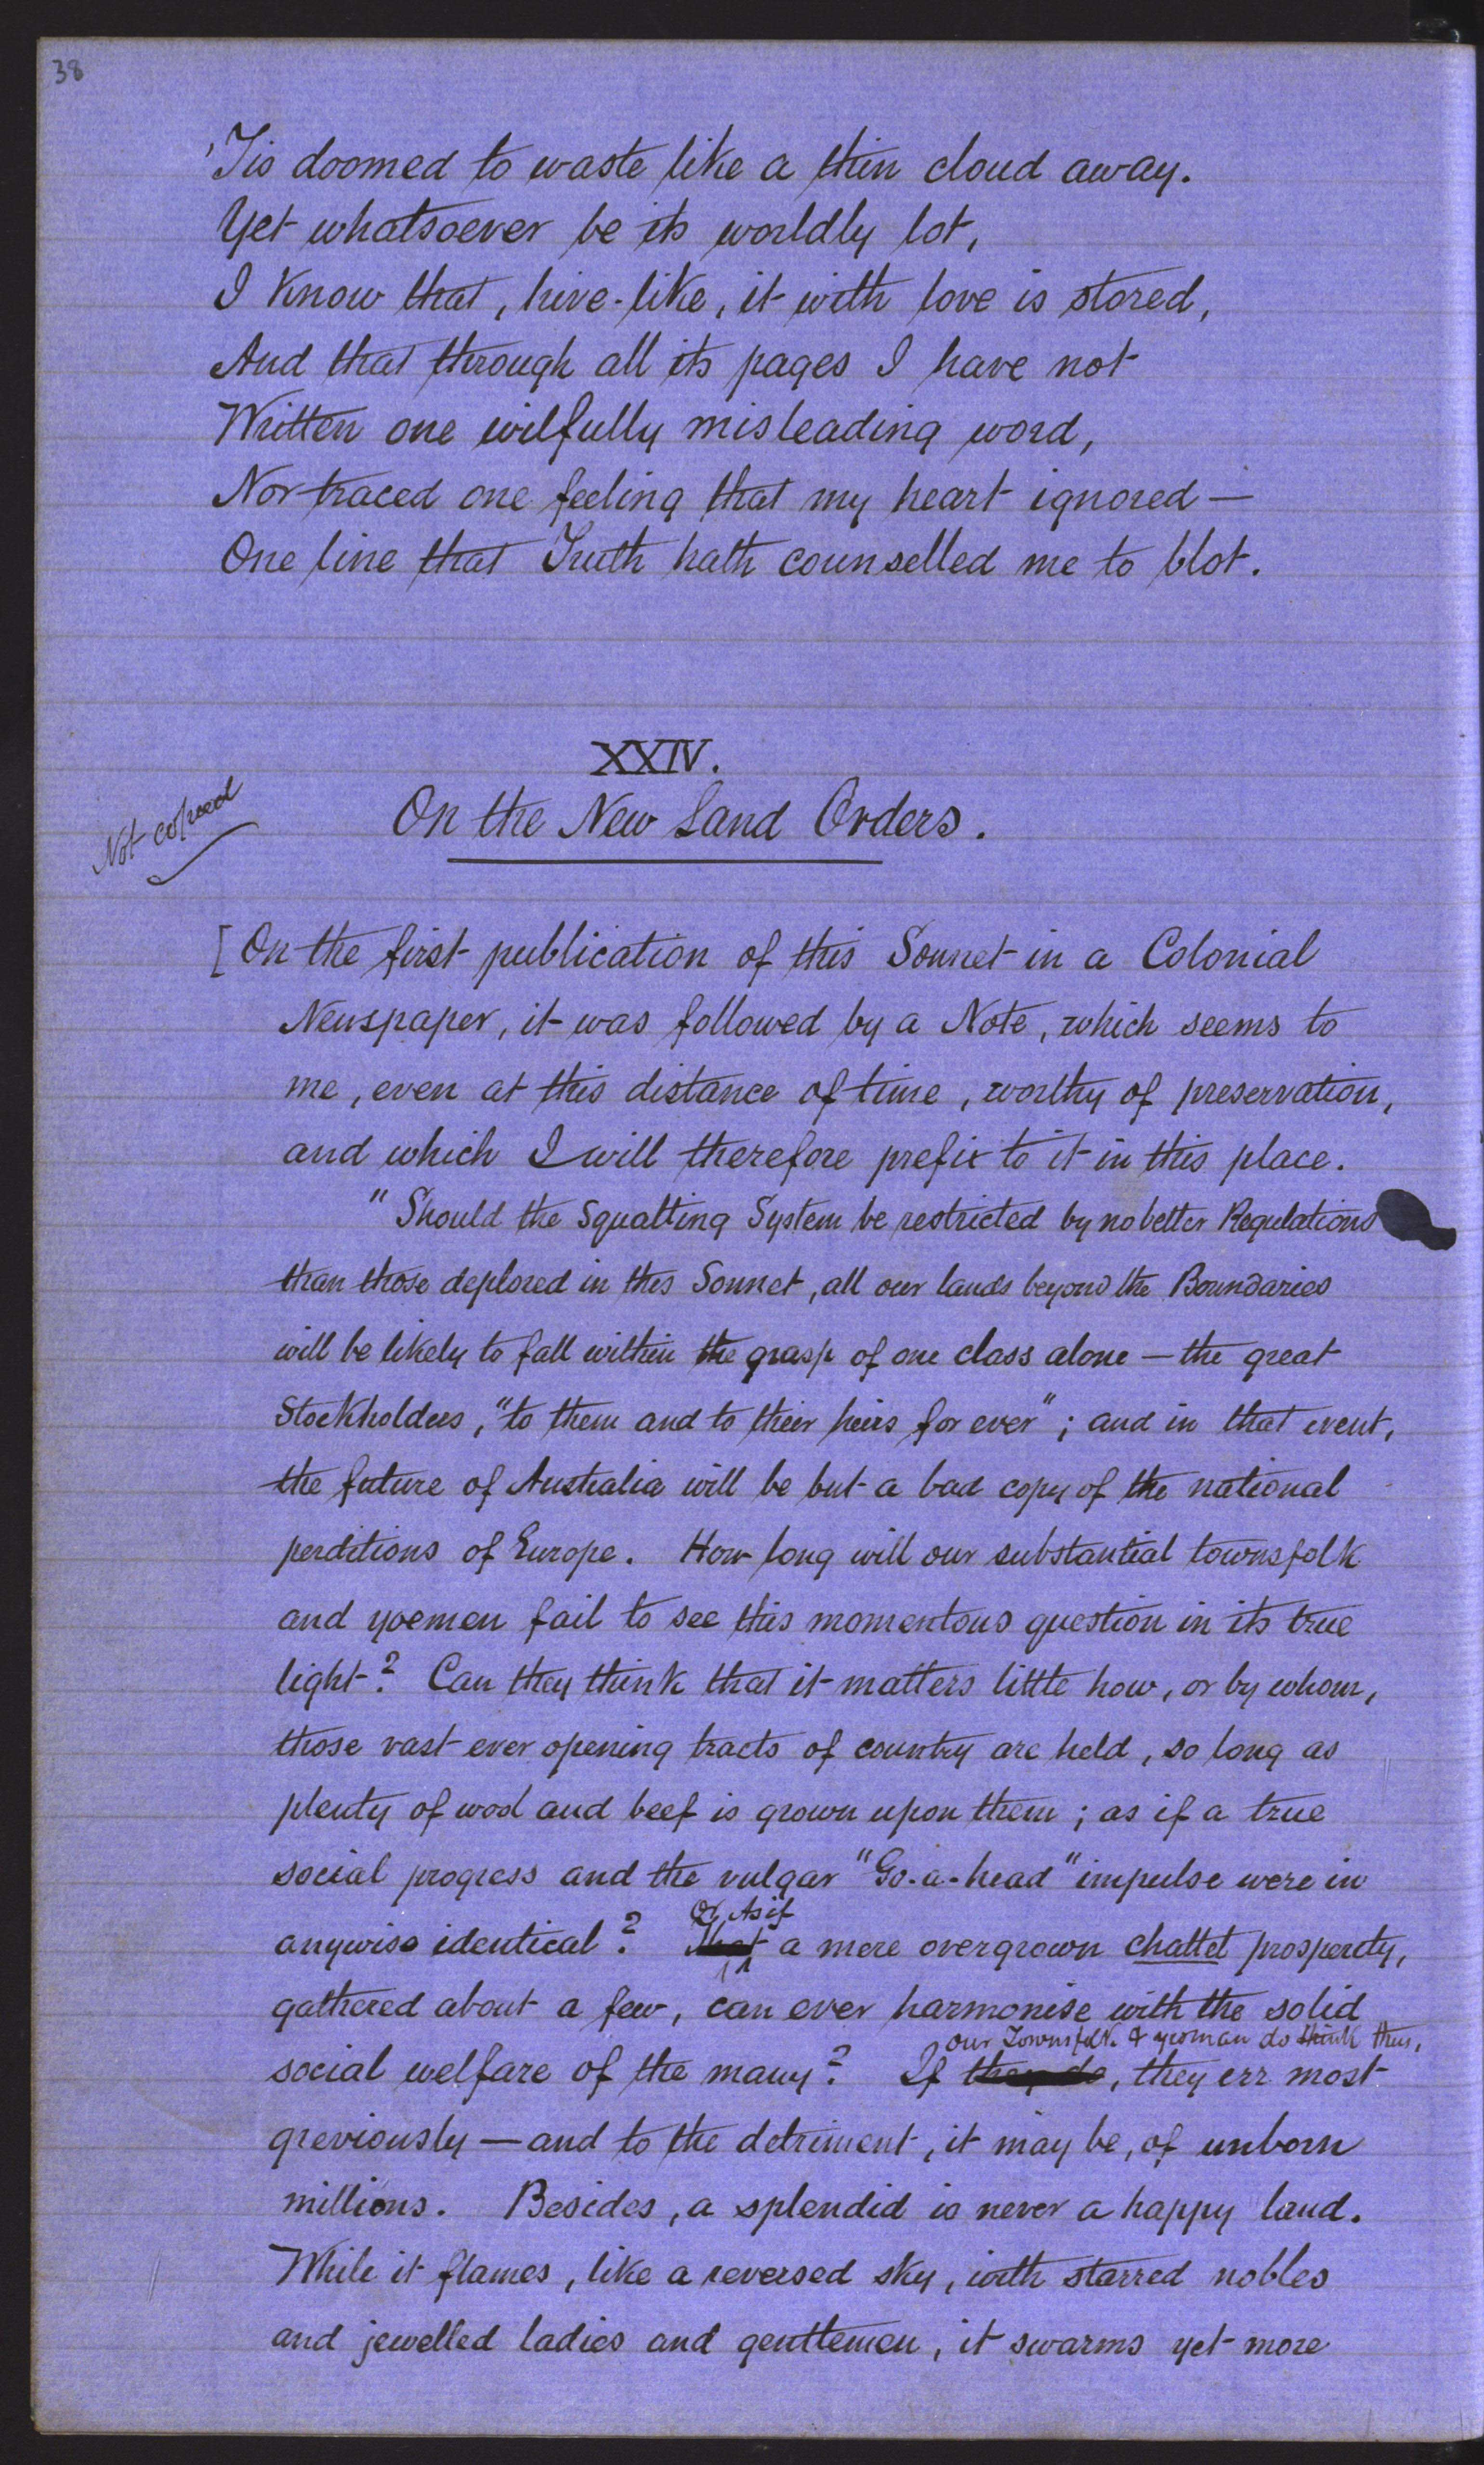 38
'Tis doomed to waste like a thin cloud away.
Yet whatsoever be its worldly lot,
I know that, hive-like, it with love is stored,
And that through all its pages I have not
Written one wilfully misleading word,
Nor traced one feeling that my heart ignored —
One line that Truth hath counselled me to blot.
XXIV.
Not copied
On the New Land Orders.
[On the first publication of this Sonnet in a Colonial
Newspaper, it was followed by a Note, which seems to
me, even at this distance of time, worthy of preservation,
and which I will therefore prefix to it in this place.
"Should the Squatting System be restricted by no better Regulations
than those deplored in this Sonnet, all our lands beyond the Boundaries
will be likely to fall within the grasp of one class alone — the great
Stockholders, "to them and to their heirs for ever"; and in that event,
the future of Australia will be but a bad copy of the national
perditions of Europe. How long will our substantial townsfolk
and yoemen fail to see this momentous question in its true
light? Can they think that it matters little how, or by whom,
those vast ever opening tracts of country are held, so long as
plenty of wool and beef is grown upon them; as if a true
social progress and the vulgar "Go-a-head" impulse were in
Or As if
anywise identical? That a mere overgrown chattel prosperity,
gathered about a few, can ever harmonise with the solid
our Townsfolk & yeoman do think thus,
social welfare of the many? If they do, they err most
greviously — and to the detriment, it may be, of unborn
millions. Besides, a splendid is never a happy land.
While it flames, like a reversed sky, with starred nobles
and jewelled ladies and gentlemen, it swarms yet more